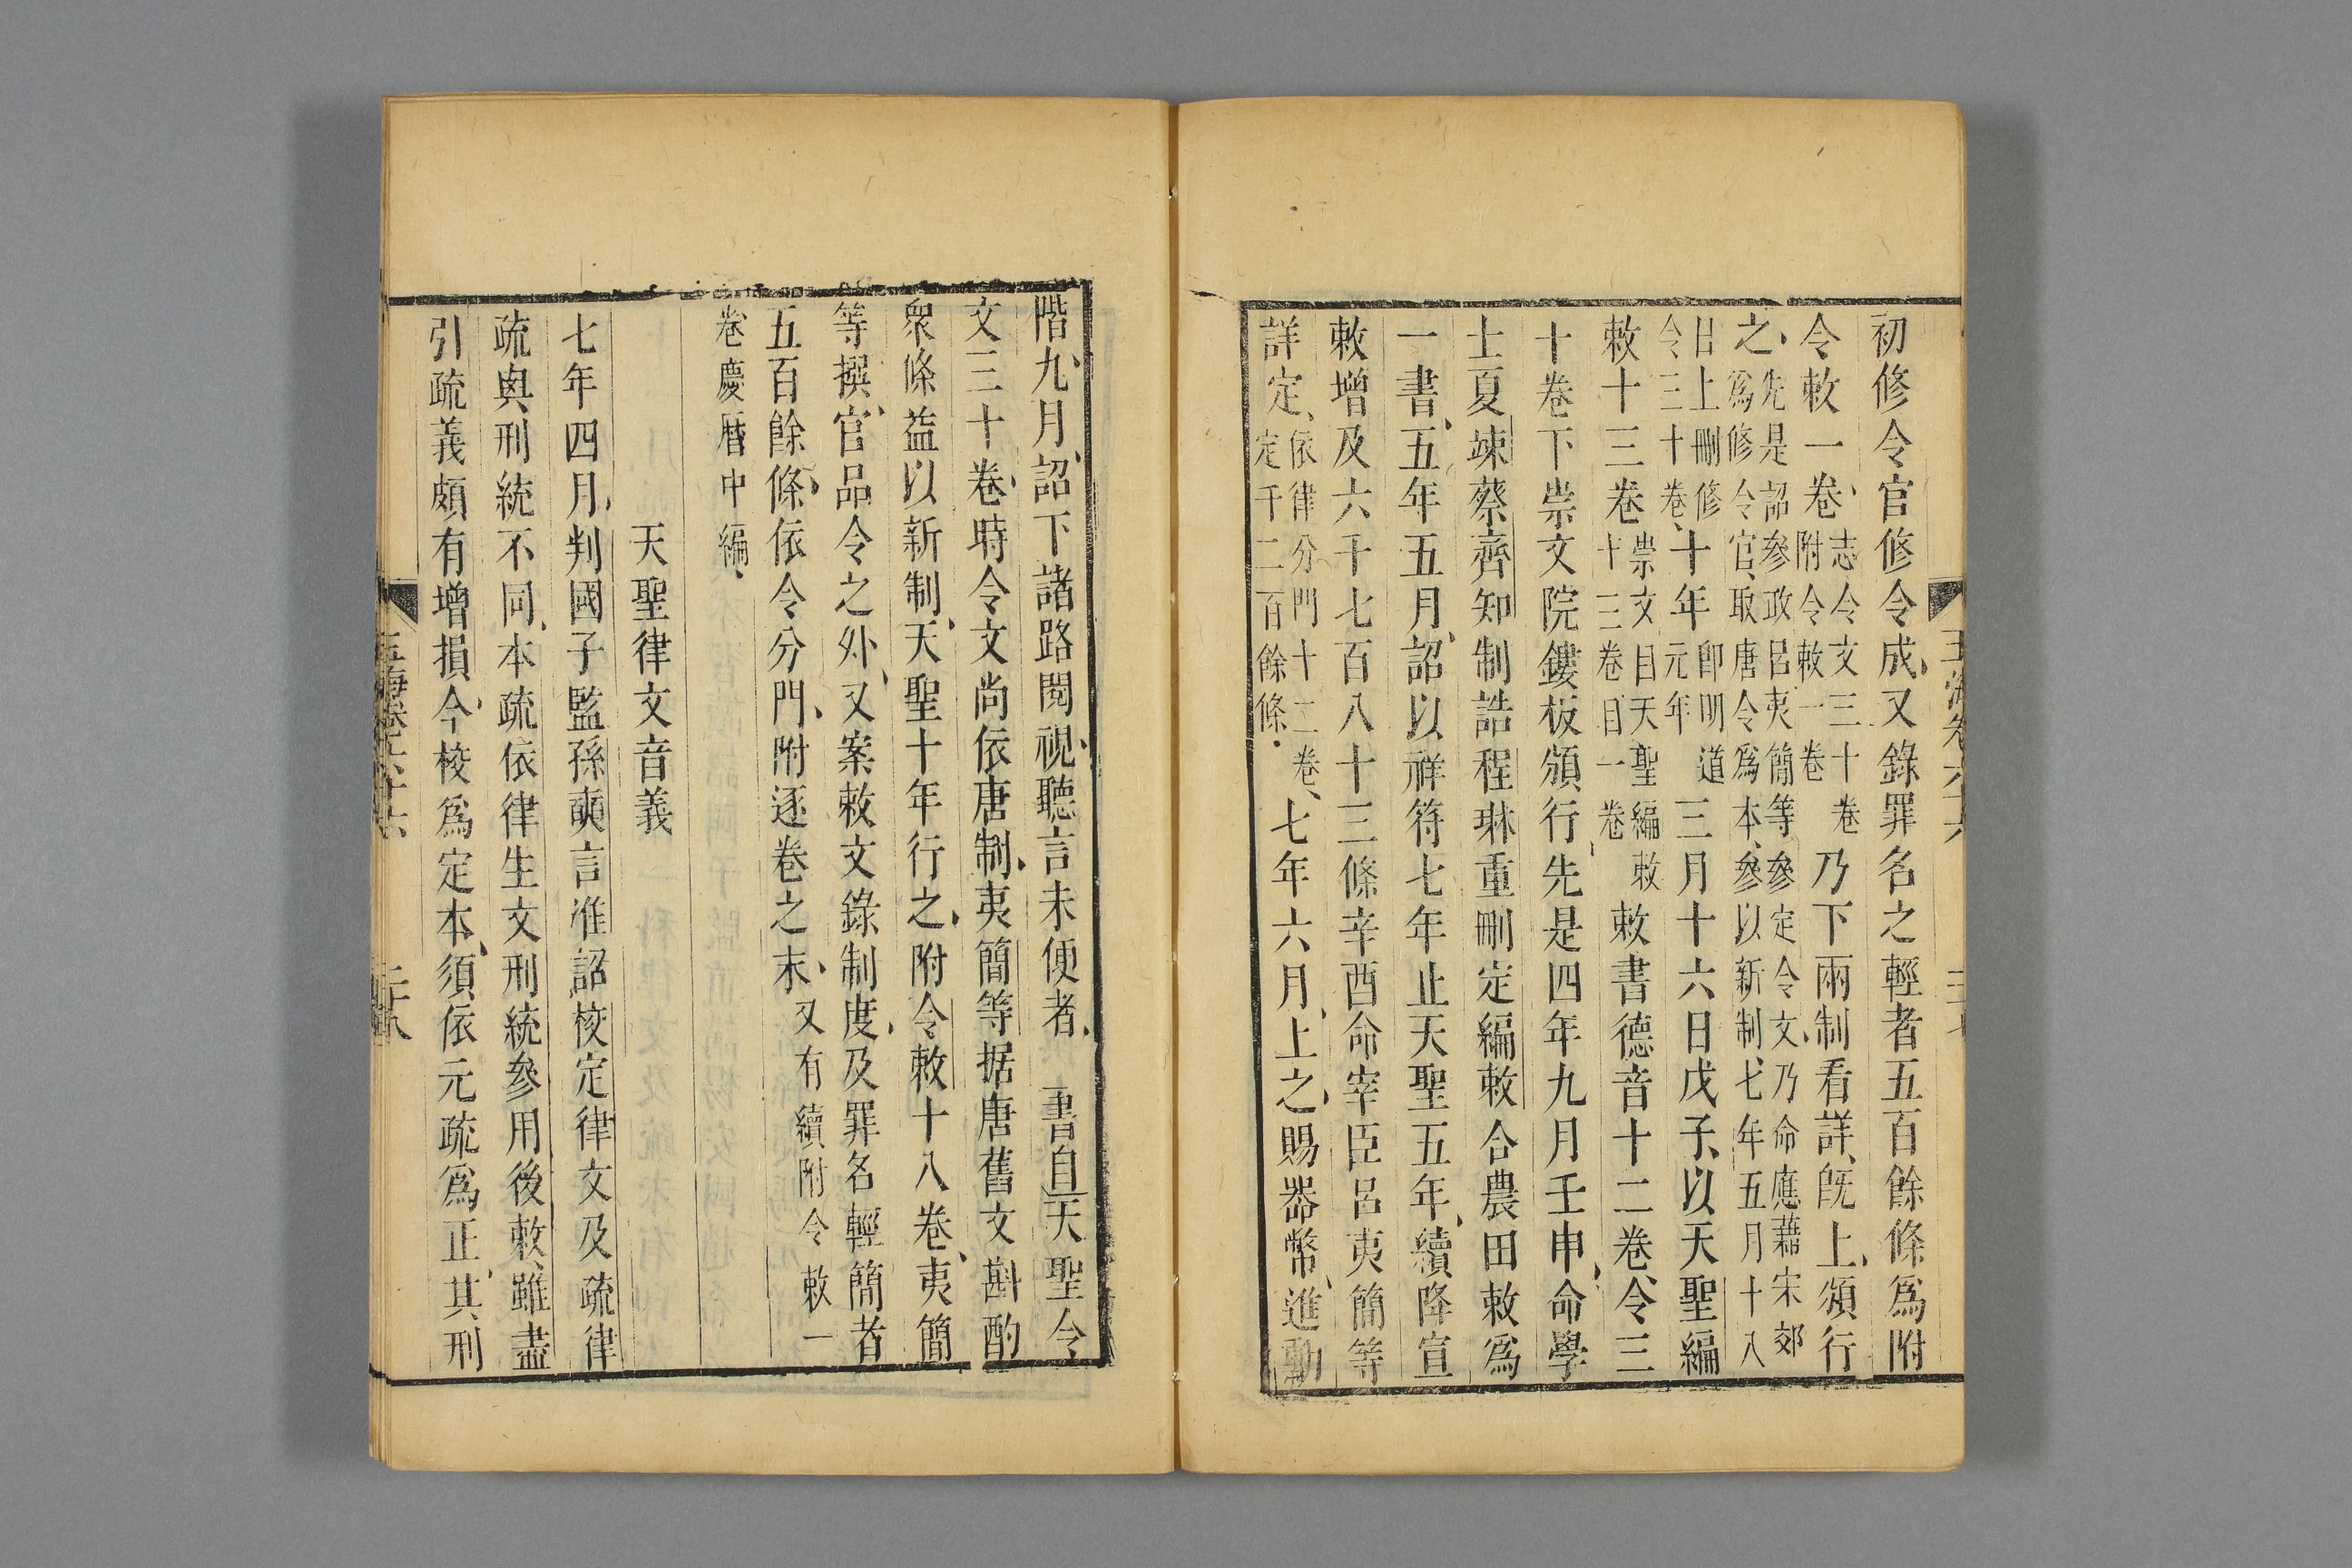 初修令官修令成又錄罪名之輕者五百餘條爲附
令敕一卷志令文三十卷附令敕一卷乃下兩制看詳旣上頒行
之先是詔參政呂夷簡等參定令文乃命應藉宋郊爲修令官取唐令爲本參以新制七年五月十八
日上刪修令三十卷十年卽明道元年三月十六日戊子以天聖編
敕十三卷崇文目天聖編敕十三卷目一卷敕書德音十二卷令三
十卷下崇文院鏤板頒行先是四年九月壬申命學
士夏竦蔡齊知制誥程琳重刪定編敕合農田敕爲
一書五年五月詔以祥符七年止天聖五年續降宣
敕增及六千七百八十三條辛酉命宰臣呂夷簡等
詳定依律分門十二卷定千二百餘條七年六月上之賜器幣進勳
階九月詔下諸路閱視聽言未便者 書目天聖令
文三十卷時令文尚依唐制夷簡等据唐舊文斟酌
衆條益以新制天聖十年行之附令敕十八卷夷簡
等撰官品令之外又案敕文錄制度及罪名輕簡者
五百餘條依令分門附逐卷之末又有續附令敕一
卷慶曆中編
天聖律文音義
七年四月判國子監孫奭言准詔校定律文及疏律
疏與刑統不同本疏依律生文刑統參用後敕雖盡
引疏義頗有增損今校爲定本須依元疏爲正其刑
玉海卷六十六
二十八